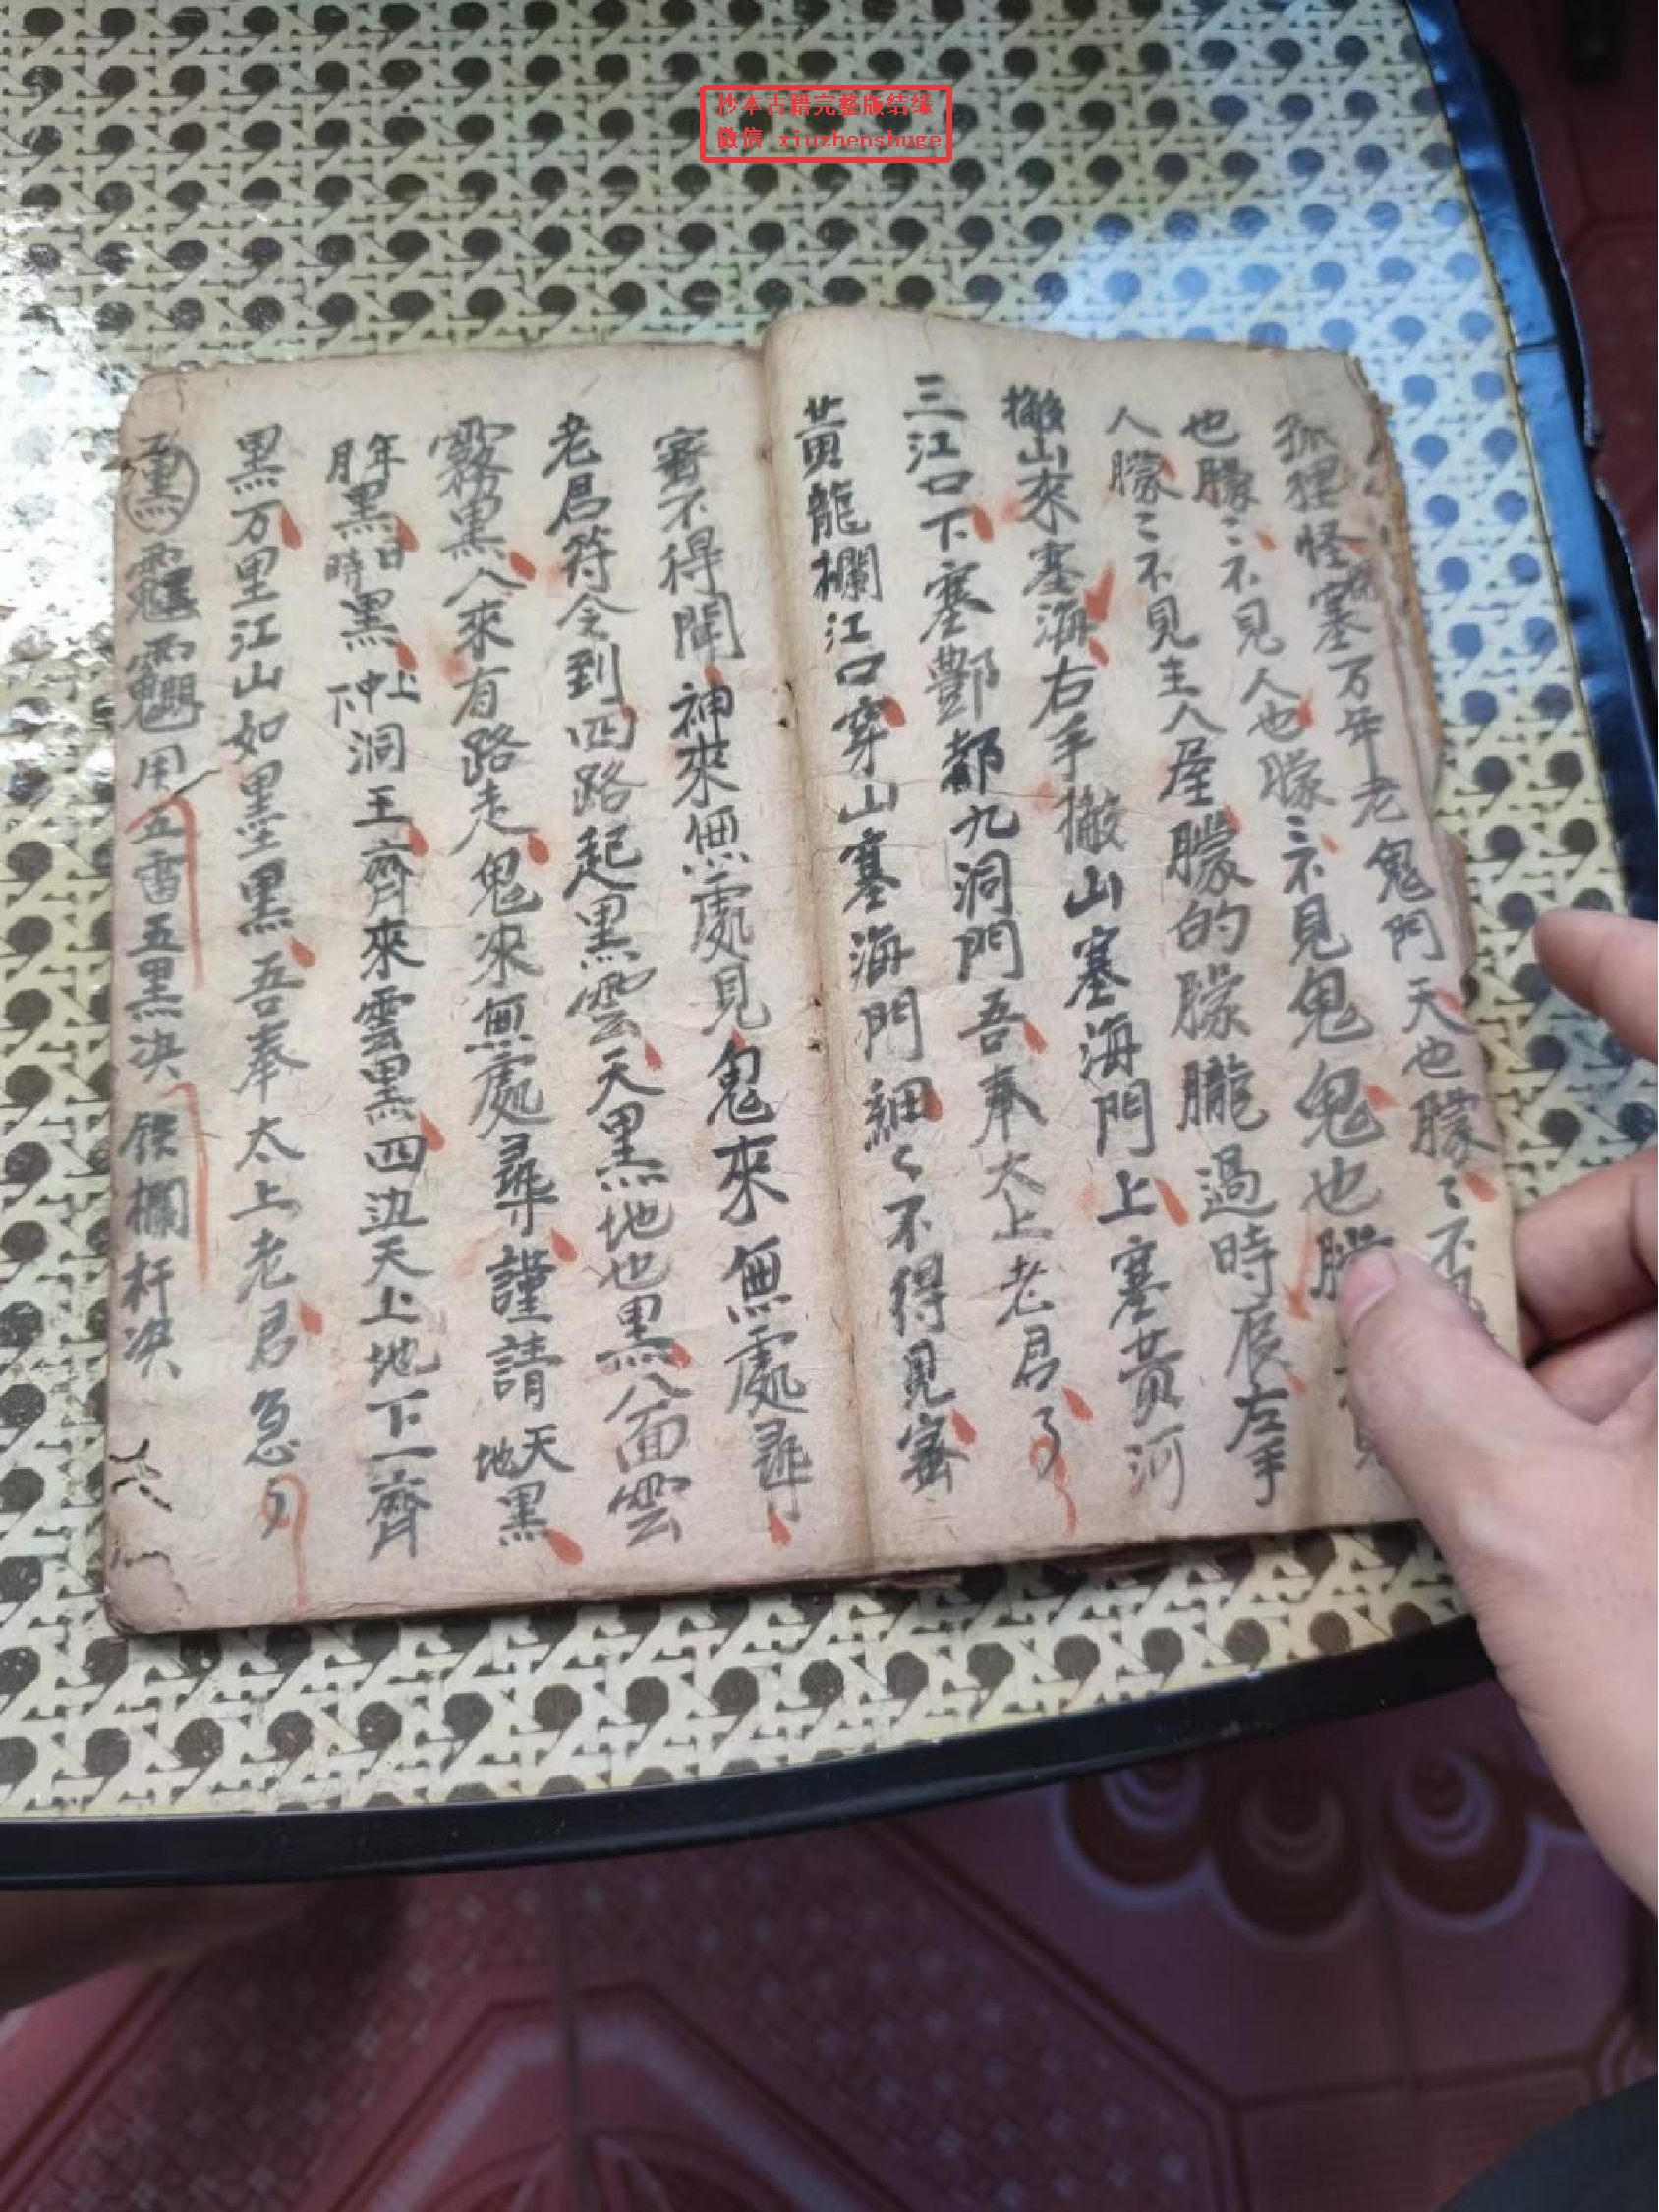 抄本古籍完整版结缘
微信 xiuzhenshuge
狐狸怪塞万年老鬼門天也朦〻不見
也朦〻不見人也朦〻不見鬼鬼也朦
人朦〻不見主人屋朦的朦朧過時辰左手
搬山來塞海右手搬山塞海門上塞黄河
三江口下塞酆都九洞門吾奉太上老君
黄龍欄江口穿山塞海門細〻不得見蜜
蜜不得聞神來無處見鬼來無處尋
老君符令到四路起黑雲天黑地也黑八面雲
霧黑人來有路走鬼來無處尋謹請天地黑
年月黑日時黑上中下洞王齊來雲黑四边天上地下一齊
黑万里江山如墨黑吾奉太上老君急
用五雷五黑决 铁欄杆决